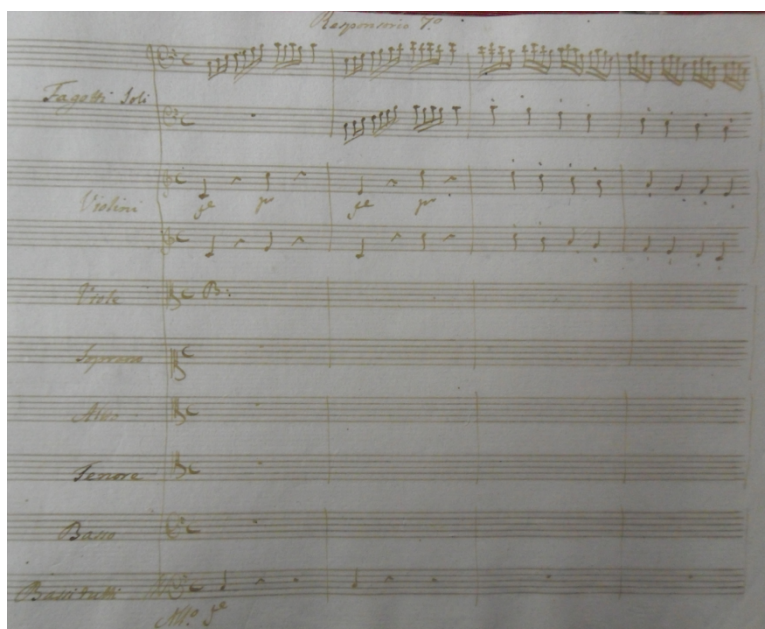 Responsorio 7.º
Fagotti Soli
Violini
fe pº fe pº
Viole
B.
Soprano
Alto
Tenore
Basso
Bassi tutti
All.º fe